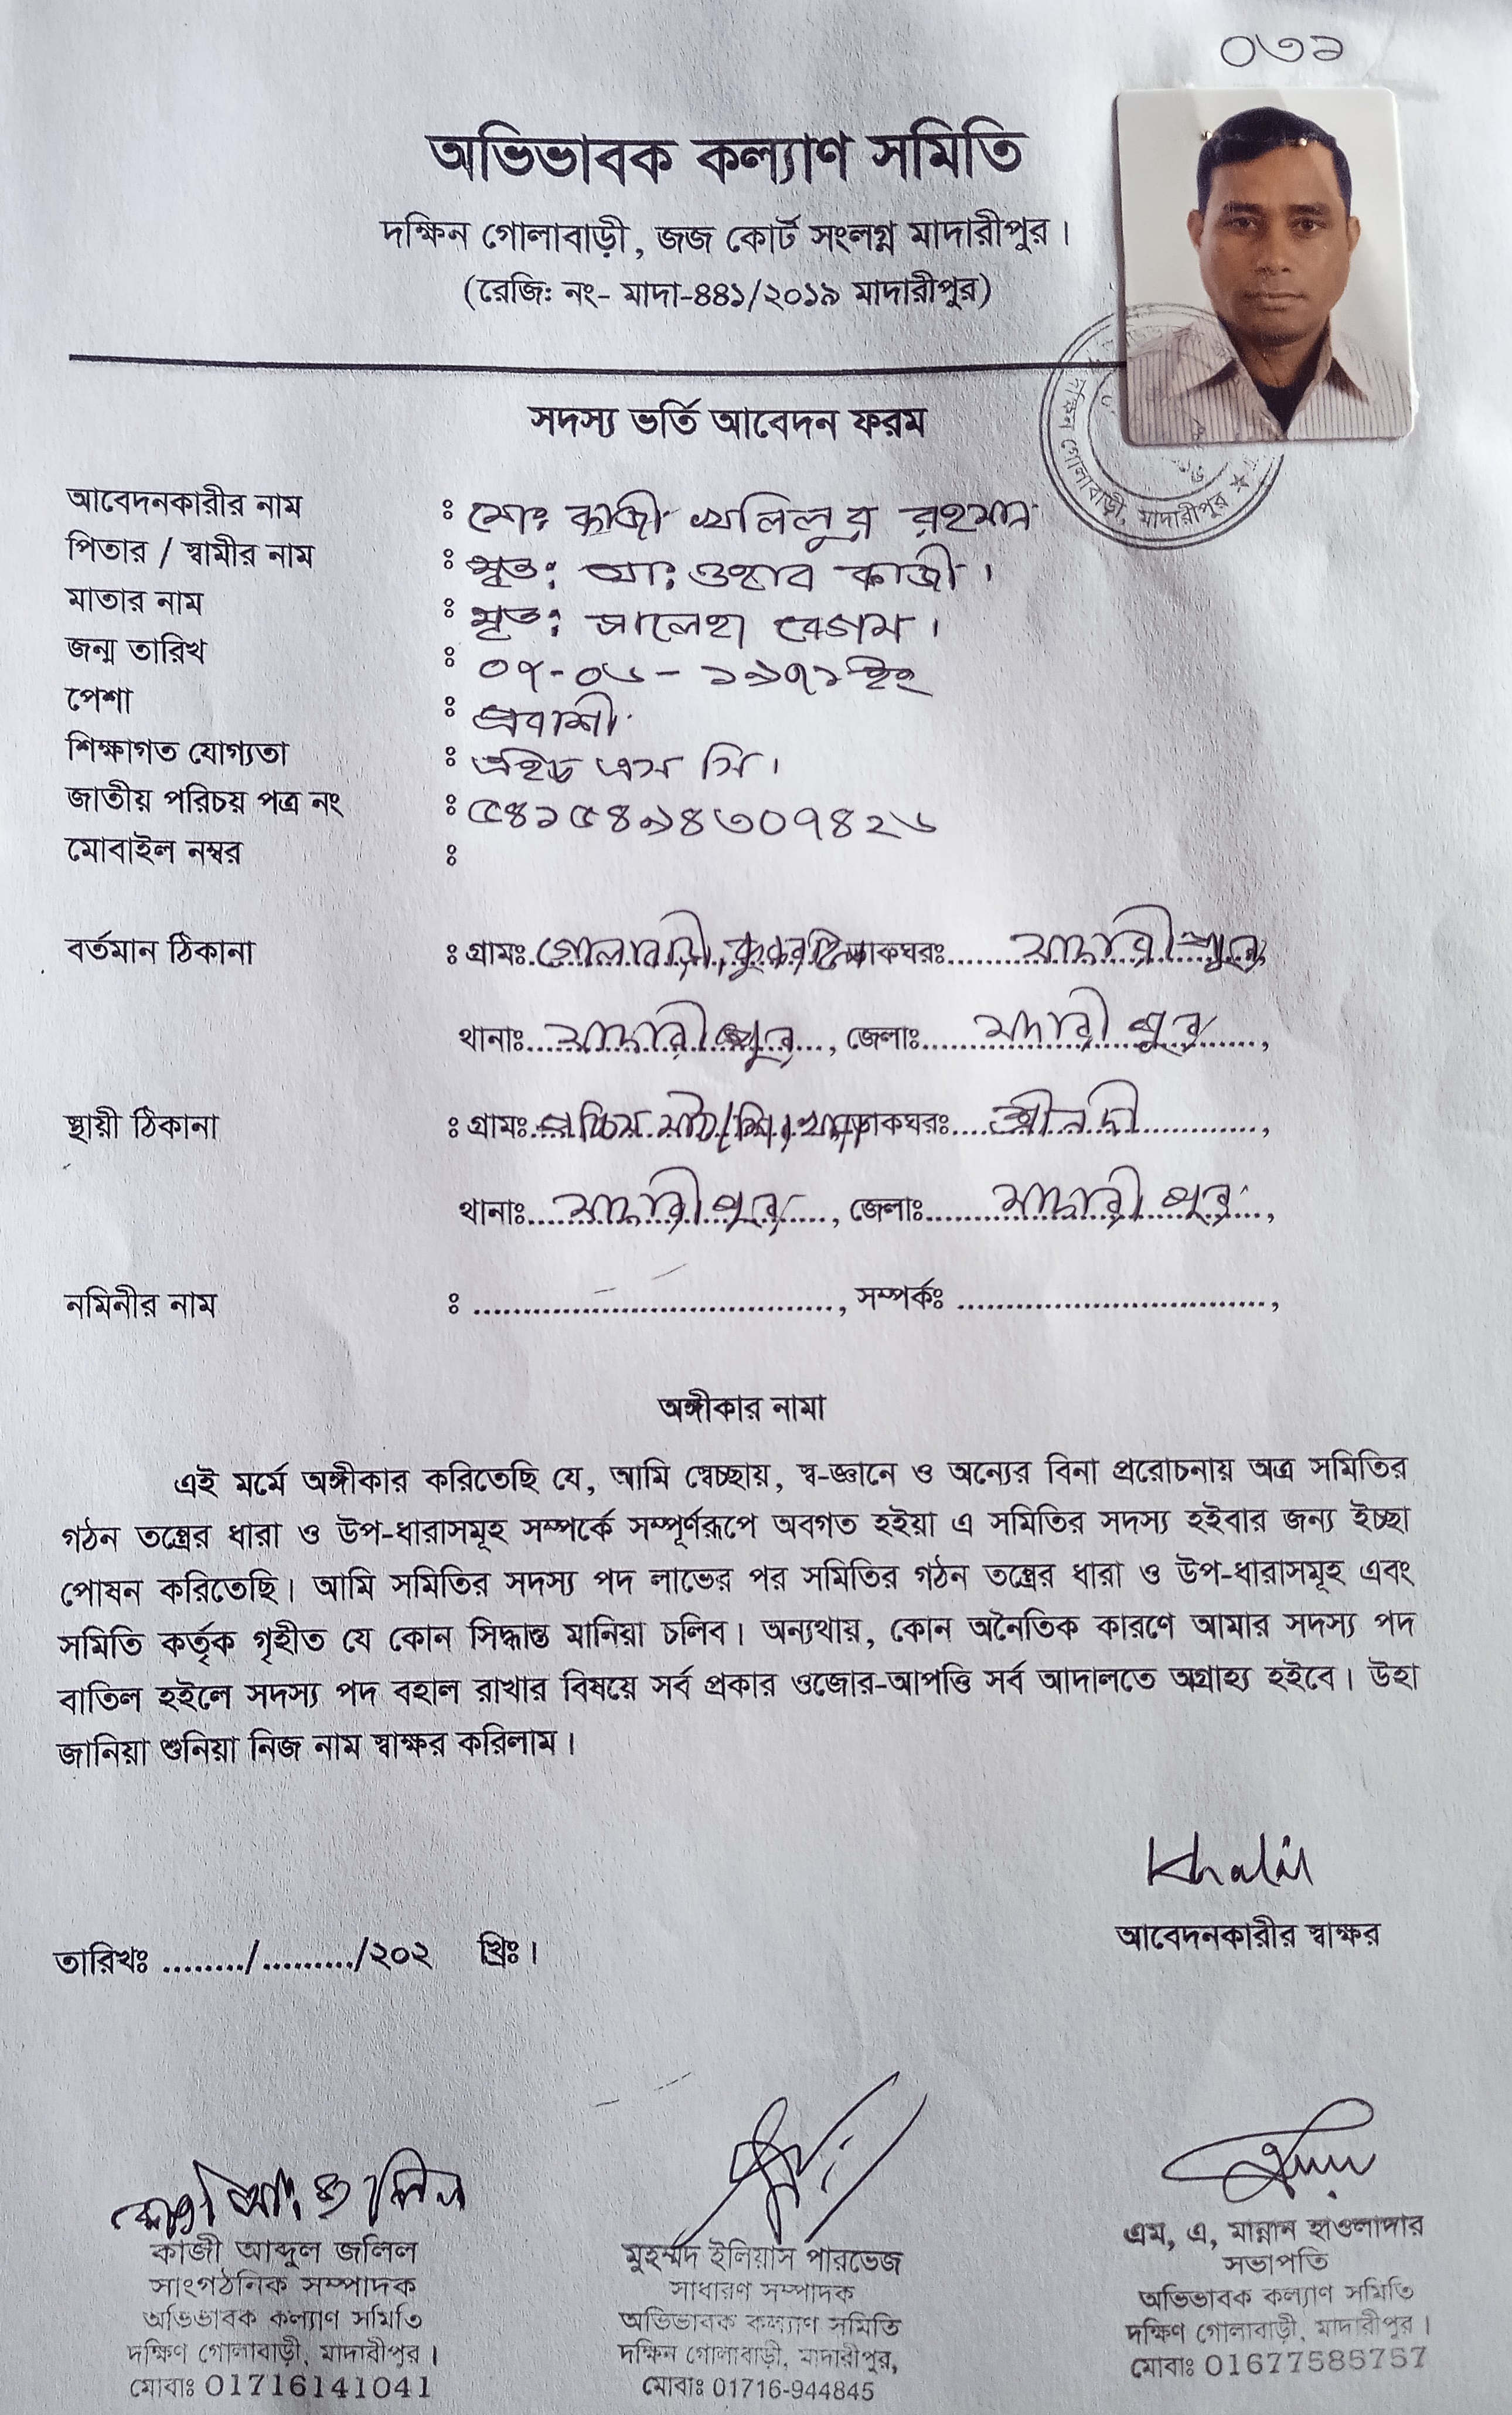 ০৩১
অভিভাবক কল্যাণ সমিতি
দক্ষিন গোলাবাড়ী, জজ কোর্ট সংলগ্ন মাদারীপুর।
(রেজি: নং- মাদা-৪৪১/২০১৯ মাদারীপুর)
সদস্য ভর্তি আবেদন ফরম
দক্ষিন গোলাবাড়ী, মাদারীপুর ★
আবেদনকারীর নাম : মোঃ কাজী খলিলুর রহমান
পিতার / স্বামীর নাম : মৃত: আ: ওহাব কাজী।
মাতার নাম : মৃত: সালেহা বেগম।
জন্ম তারিখ : ০৭-০৬-১৯৭১ ইং
পেশা : প্রবাশী
শিক্ষাগত যোগ্যতা : এইচ এস সি।
জাতীয় পরিচয় পত্র নং : ৫৪১৫৪৯৪৩০৭৪২৬
মোবাইল নম্বর :
বর্তমান ঠিকানা : গ্রামঃ গোলাবাড়ী, ডাকঘরঃ মাদারীপুর
থানাঃ মাদারীপুর, জেলাঃ মাদারীপুর,
স্থায়ী ঠিকানা : গ্রামঃ পশ্চিম মাঠ ডাকঘরঃ শ্রীনদী,
থানাঃ মাদারীপুর, জেলাঃ মাদারীপুর,
নমিনীর নাম : ...................................., সম্পর্কঃ ...............................,
অঙ্গীকার নামা
এই মর্মে অঙ্গীকার করিতেছি যে, আমি স্বেচ্ছায়, স্ব-জ্ঞানে ও অন্যের বিনা প্ররোচনায় অত্র সমিতির
গঠন তন্ত্রের ধারা ও উপ-ধারাসমূহ সম্পর্কে সম্পূর্ণরূপে অবগত হইয়া এ সমিতির সদস্য হইবার জন্য ইচ্ছা
পোষন করিতেছি। আমি সমিতির সদস্য পদ লাভের পর সমিতির গঠন তন্ত্রের ধারা ও উপ-ধারাসমূহ এবং
সমিতি কর্তৃক গৃহীত যে কোন সিদ্ধান্ত মানিয়া চলিব। অন্যথায়, কোন অনৈতিক কারণে আমার সদস্য পদ
বাতিল হইলে সদস্য পদ বহাল রাখার বিষয়ে সর্ব প্রকার ওজোর-আপত্তি সর্ব আদালতে অগ্রাহ্য হইবে। উহা
জানিয়া শুনিয়া নিজ নাম স্বাক্ষর করিলাম।
Khalil
আবেদনকারীর স্বাক্ষর
তারিখঃ ......../........./২০২ খ্রিঃ।
কাজী আব্দুল জলিল
সাংগঠনিক সম্পাদক
অভিভাবক কল্যাণ সমিতি
দক্ষিণ গোলাবাড়ী, মাদারীপুর।
মোবাঃ 01716141041
মুহম্মদ ইলিয়াস পারভেজ
সাধারণ সম্পাদক
অভিভাবক কল্যাণ সমিতি
দক্ষিন গোলাবাড়ী, মাদারীপুর,
মোবাঃ 01716-944845
এম, এ, মান্নান হাওলাদার
সভাপতি
অভিভাবক কল্যাণ সমিতি
দক্ষিণ গোলাবাড়ী, মাদারীপুর।
মোবাঃ 01677585757